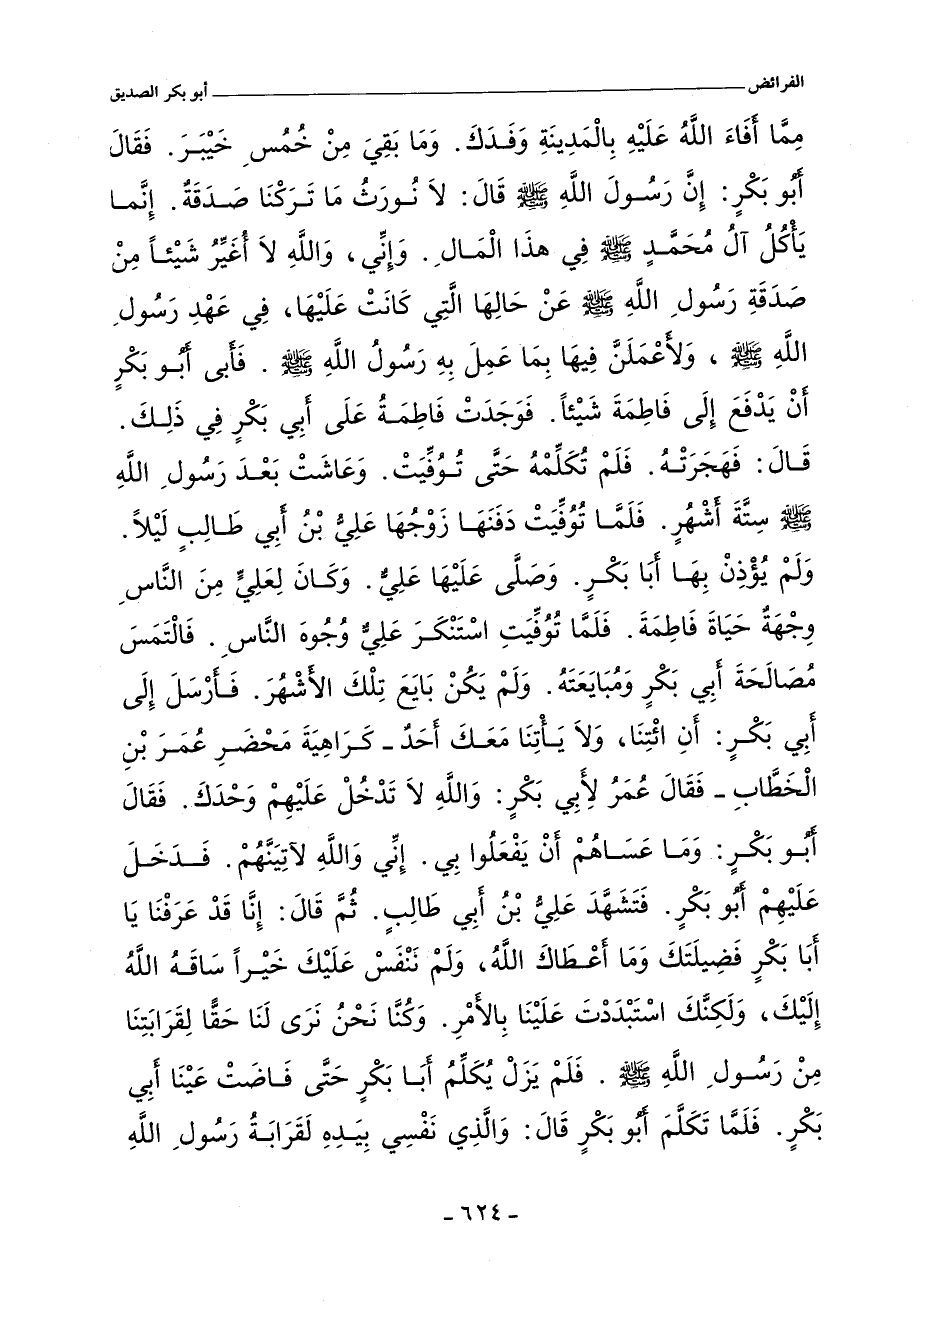 الفرائض ــــــ أبو بكر الصديق
مِمَّا أَفَاءَ اللَّهُ عَلَيْهِ بِالْمَدِينَةِ وَفَدَكَ. وَمَا بَقِيَ مِنْ خُمُسِ خَيْبَرَ. فَقَالَ
أَبُو بَكْرٍ: إِنَّ رَسُولَ اللَّهِ ﷺ قَالَ: لَا نُورَثُ مَا تَرَكْنَا صَدَقَةٌ. إِنَّمَا
يَأْكُلُ آلُ مُحَمَّدٍ ﷺ فِي هذَا الْمَالِ. وَإِنِّي، وَاللَّهِ لَا أُغَيِّرُ شَيْئاً مِنْ
صَدَقَةِ رَسُولِ اللَّهِ ﷺ عَنْ حَالِهَا الَّتِي كَانَتْ عَلَيْهَا، فِي عَهْدِ رَسُولِ
اللَّهِ ﷺ، وَلأَعْمَلَنَّ فِيهَا بِمَا عَمِلَ بِهِ رَسُولُ اللَّهِ ﷺ. فَأَبى أَبُو بَكْرٍ
أَنْ يَدْفَعَ إِلَى فَاطِمَةَ شَيْئاً. فَوَجَدَتْ فَاطِمَةُ عَلَى أَبِي بَكْرٍ فِي ذَلِكَ.
قَالَ: فَهَجَرَتْهُ. فَلَمْ تُكَلِّمْهُ حَتَّى تُوُفِّيَتْ. وَعَاشَتْ بَعْدَ رَسُولِ اللَّهِ
ﷺ سِتَّةَ أَشْهُرٍ. فَلَمَّا تُوُفِّيَتْ دَفَنَهَا زَوْجُهَا عَلِيُّ بْنُ أَبِي طَالِبٍ لَيْلاً.
وَلَمْ يُؤْذِنْ بِهَا أَبَا بَكْرٍ. وَصَلَّى عَلَيْهَا عَلِيٌّ. وَكَانَ لِعَلِيٍّ مِنَ النَّاسِ
وِجْهَةٌ حَيَاةَ فَاطِمَةَ. فَلَمَّا تُوُفِّيَتِ اسْتَنْكَرَ عَلِيٌّ وُجُوهَ النَّاسِ. فَالْتَمَسَ
مُصَالَحَةَ أَبِي بَكْرٍ وَمُبَايَعَتَهُ. وَلَمْ يَكُنْ بَايَعَ تِلْكَ الأَشْهُرَ. فَأَرْسَلَ إِلَى
أَبِي بَكْرٍ: أَنِ ائْتِنَا، وَلَا يَأْتِنَا مَعَكَ أَحَدٌ ـ كَرَاهِيَةَ مَحْضَرِ عُمَرَ بْنِ
الْخَطَّابِ ـ فَقَالَ عُمَرُ لِأَبِي بَكْرٍ: وَاللَّهِ لَا تَدْخُلْ عَلَيْهِمْ وَحْدَكَ. فَقَالَ
أَبُو بَكْرٍ: وَمَا عَسَاهُمْ أَنْ يَفْعَلُوا بِي. إِنِّي وَاللَّهِ لآتِيَنَّهُمْ. فَدَخَلَ
عَلَيْهِمْ أَبُو بَكْرٍ. فَتَشَهَّدَ عَلِيُّ بْنُ أَبِي طَالِبٍ. ثُمَّ قَالَ: إِنَّا قَدْ عَرَفْنَا يَا
أَبَا بَكْرٍ فَضِيلَتَكَ وَمَا أَعْطَاكَ اللَّهُ، وَلَمْ نَنْفَسْ عَلَيْكَ خَيْراً سَاقَهُ اللَّهُ
إِلَيْكَ، وَلَكِنَّكَ اسْتَبْدَدْتَ عَلَيْنَا بِالأَمْرِ. وَكُنَّا نَحْنُ نَرَى لَنَا حَقًّا لِقَرَابَتِنَا
مِنْ رَسُولِ اللَّهِ ﷺ. فَلَمْ يَزَلْ يُكَلِّمُ أَبَا بَكْرٍ حَتَّى فَاضَتْ عَيْنَا أَبِي
بَكْرٍ. فَلَمَّا تَكَلَّمَ أَبُو بَكْرٍ قَالَ: وَالَّذِي نَفْسِي بِيَدِهِ لَقَرَابَةُ رَسُولِ اللَّهِ
- ٦٢٤ -